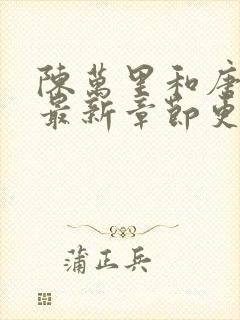 陳萬里和唐
最新章節更
蒲正兵